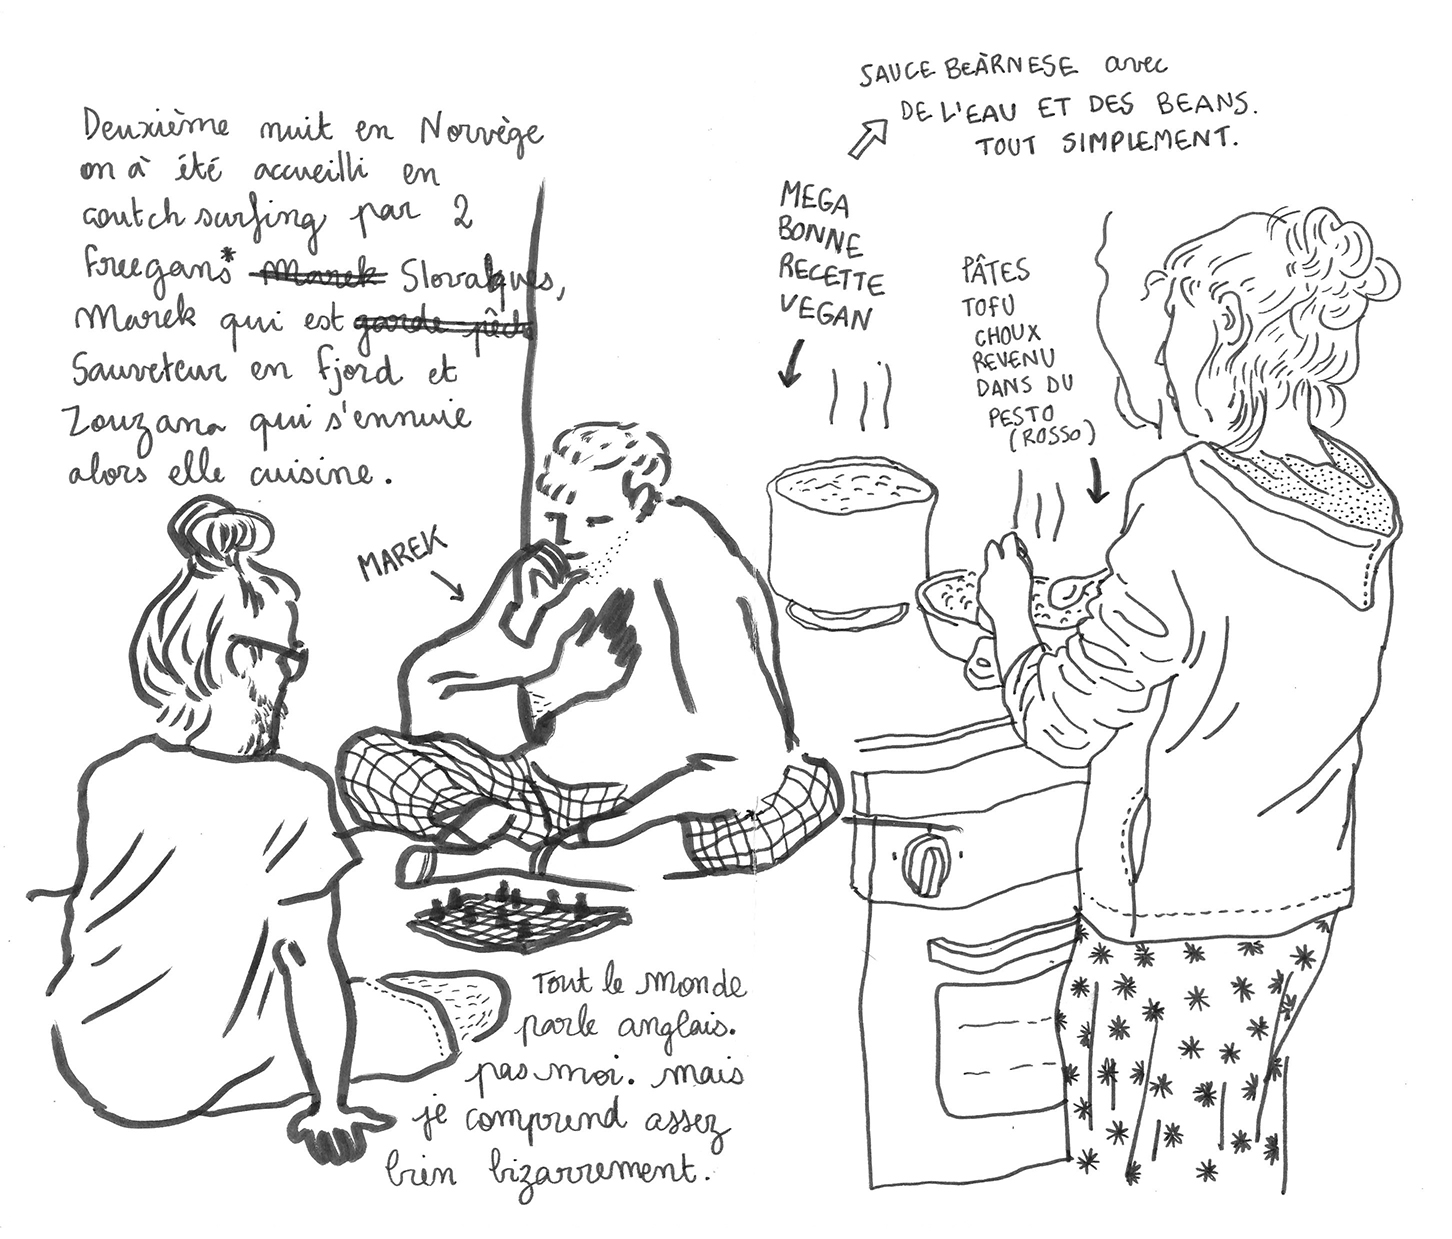 Deuxième nuit en Norvège
on à été accueilli en
coutch surfing par 2
freegans* Marek Slovaques,
Marek qui est garde pêch
Sauveteur en fjord et
Zouzana qui s'ennuie
alors elle cuisine.
MAREK
Tout le monde
parle anglais.
pas moi. mais
je comprend assez
bien bizarrement.
SAUCE BEÀRNESE avec
DE L'EAU ET DES BEANS.
TOUT SIMPLEMENT.
MEGA
BONNE
RECETTE
VEGAN
PÂTES
TOFU
CHOUX
REVENU
DANS DU
PESTO
(ROSSO)